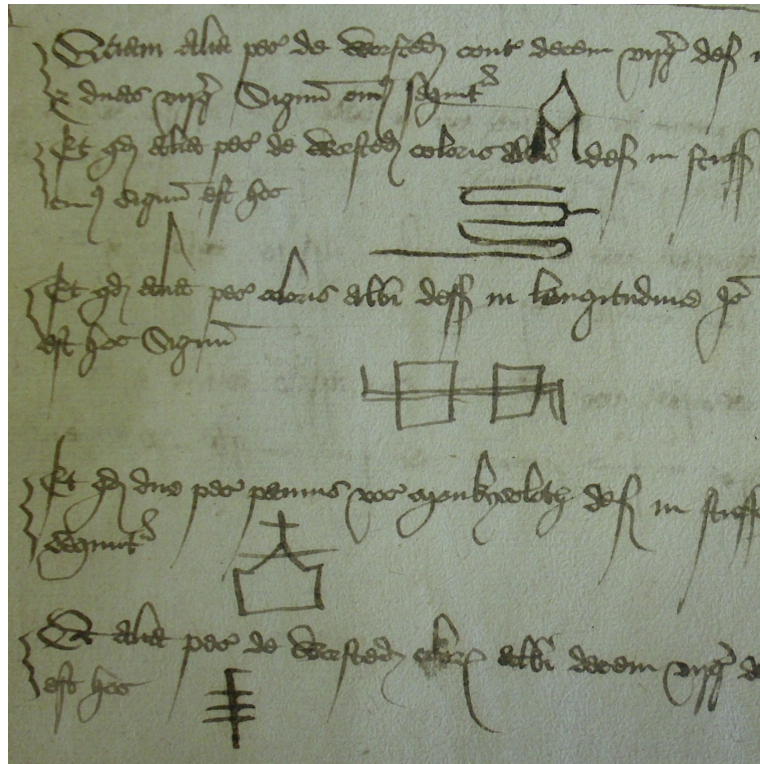 Etiam alia pec de Worsted cont decem virg def
& duas virg Signu cuius sequntr
Et qd alia pec de Worsted coloris albi def in stuff
cuius signu est hoc
Et qd alia pec coloris albi deff in longitudine
est hoc Signu
Et qd due pec pannus voc Monkyscloth def in stuff
sequntr
Et alia pec de Worsted color albi decem virg
est hoc